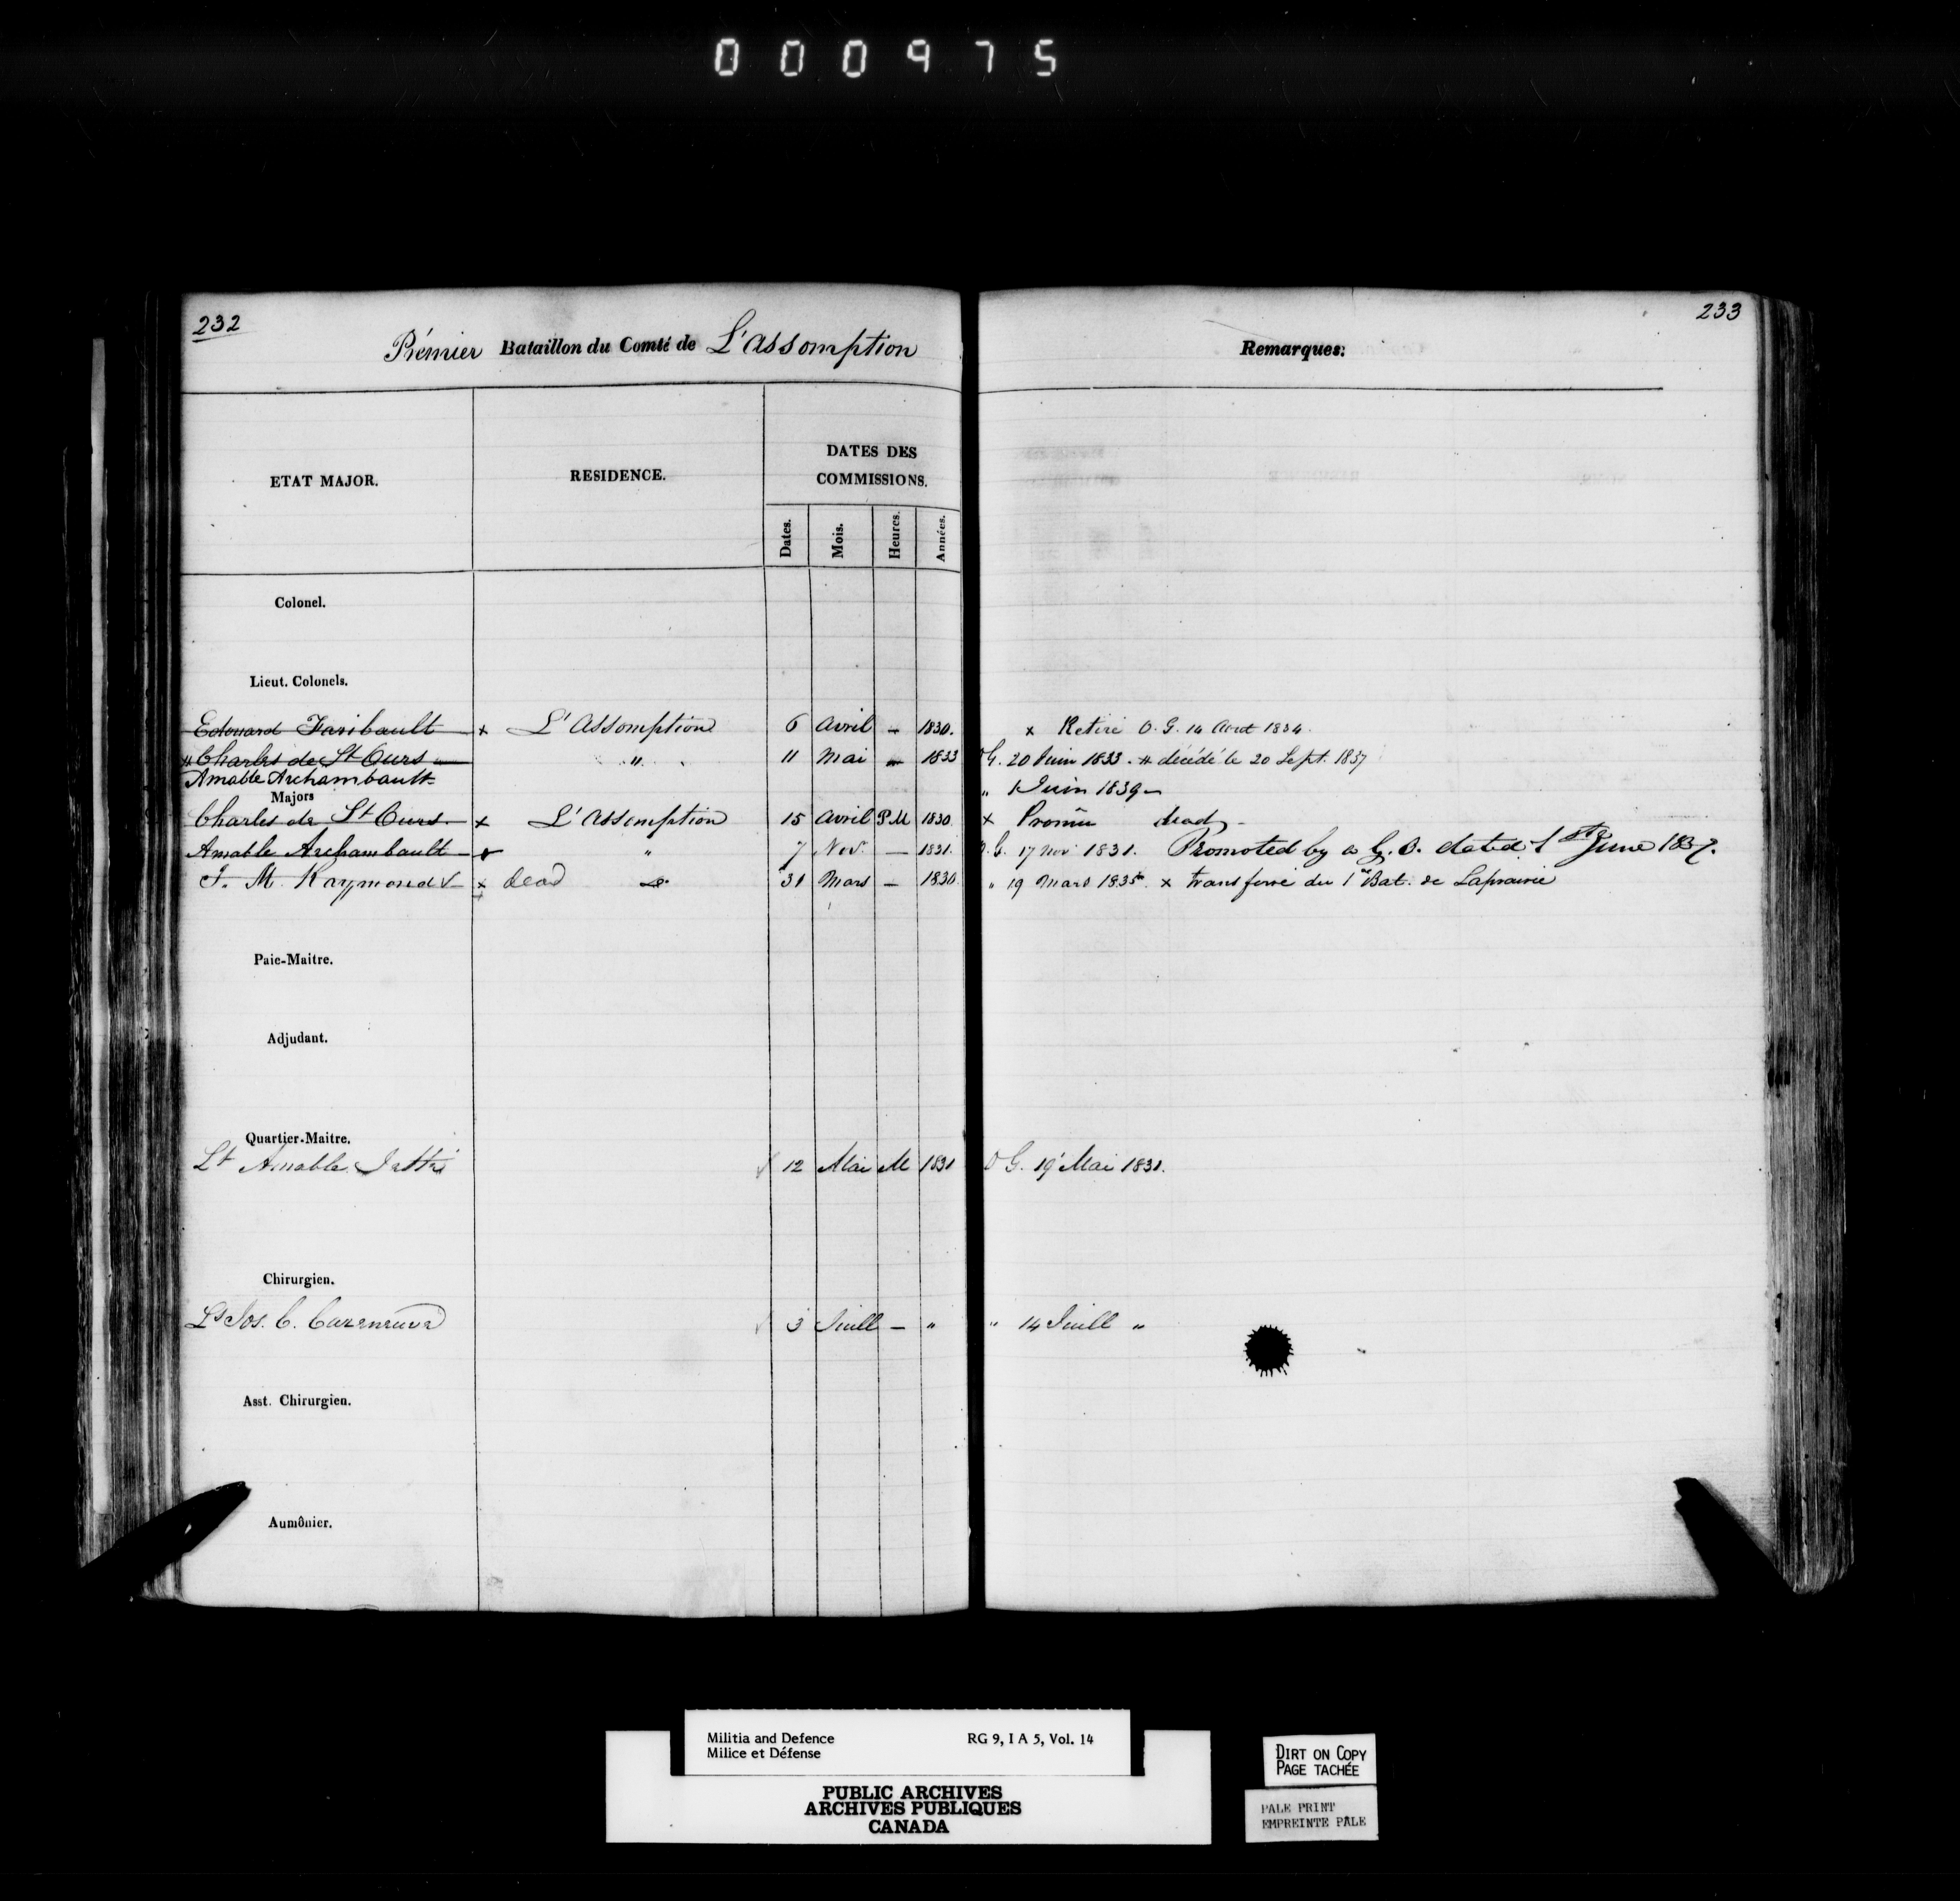 000975
232
Prémier Bataillon du Comté de L'assomption
ETAT MAJOR.
RESIDENCE.
DATES DES
COMMISSIONS.
Dates.
Mois.
Heures.
Années.
Colonel.
Lieut. Colonels.
Edouard Faribault x L'Assomption 6 Avril - 1830.
# Charles de St Ours " 11 Mai - 1833
Amable Archambault
Majors
Charles de St Ours x L'Assomption 15 Avril P M 1830
Amable Archambault " 7 Nov. - 1831.
J. M. Raymond x dead 31 Mars - 1830.
Paie-Maitre.
Adjudant.
Quartier-Maitre.
Lt Amable 12 Mai M 1831
Chirurgien.
Ls Jos. C. Cazeneuve 3 Juill - "
Asst. Chirurgien.
Aumônier.
233
Remarques:
x Retiré O. G. 14 Aout 1834.
O G. 20 Juin 1833. # décédé le 20 Sept. 1837
" 1 Juin 1839 -
x Promu dead -
O. G. 17 Nov. 1831. Promoted by a G. O. dated 1st June 1837.
" 19 Mars 1835 x transferré du 1er Bat. de Laprairie
O G. 19 Mai 1831.
" 14 Juill "
Militia and Defence RG 9, I A 5, Vol. 14
Milice et Défense
PUBLIC ARCHIVES
ARCHIVES PUBLIQUES
CANADA
DIRT ON COPY
PAGE TACHÉE
PALE PRINT
EMPREINTE PÂLE